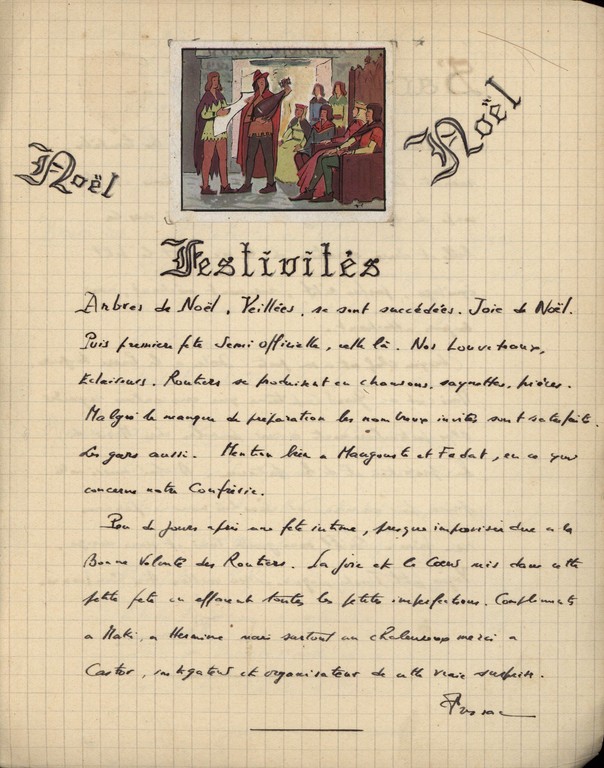 Noël
Noël
Festivités
Arbres de Noël, Veillées, se sont succédées. Joie de Noël.
Puis première fête semi officielle, celle là. Nos Louveteaux,
Eclaireurs, Routiers se produisent en chansons, saynettes, pièces.
Malgré le manque de préparation les nombreux invités sont satisfaits.
Les gars aussi. Mention bien a Mangouste et Fadat, en ce qui
concerne notre Confrérie.
Peu de jours après une fête intime, presque improvisée due a la
Bonne Volonté des Routiers. La joie et le Cœur mis dans cette
petite fête en effacent toutes les petites imperfections. Compliments
a Maki, a Hermine mais surtout un chaleureux merci a
Castor, instigateur et organisateur de cette vraie surprise.